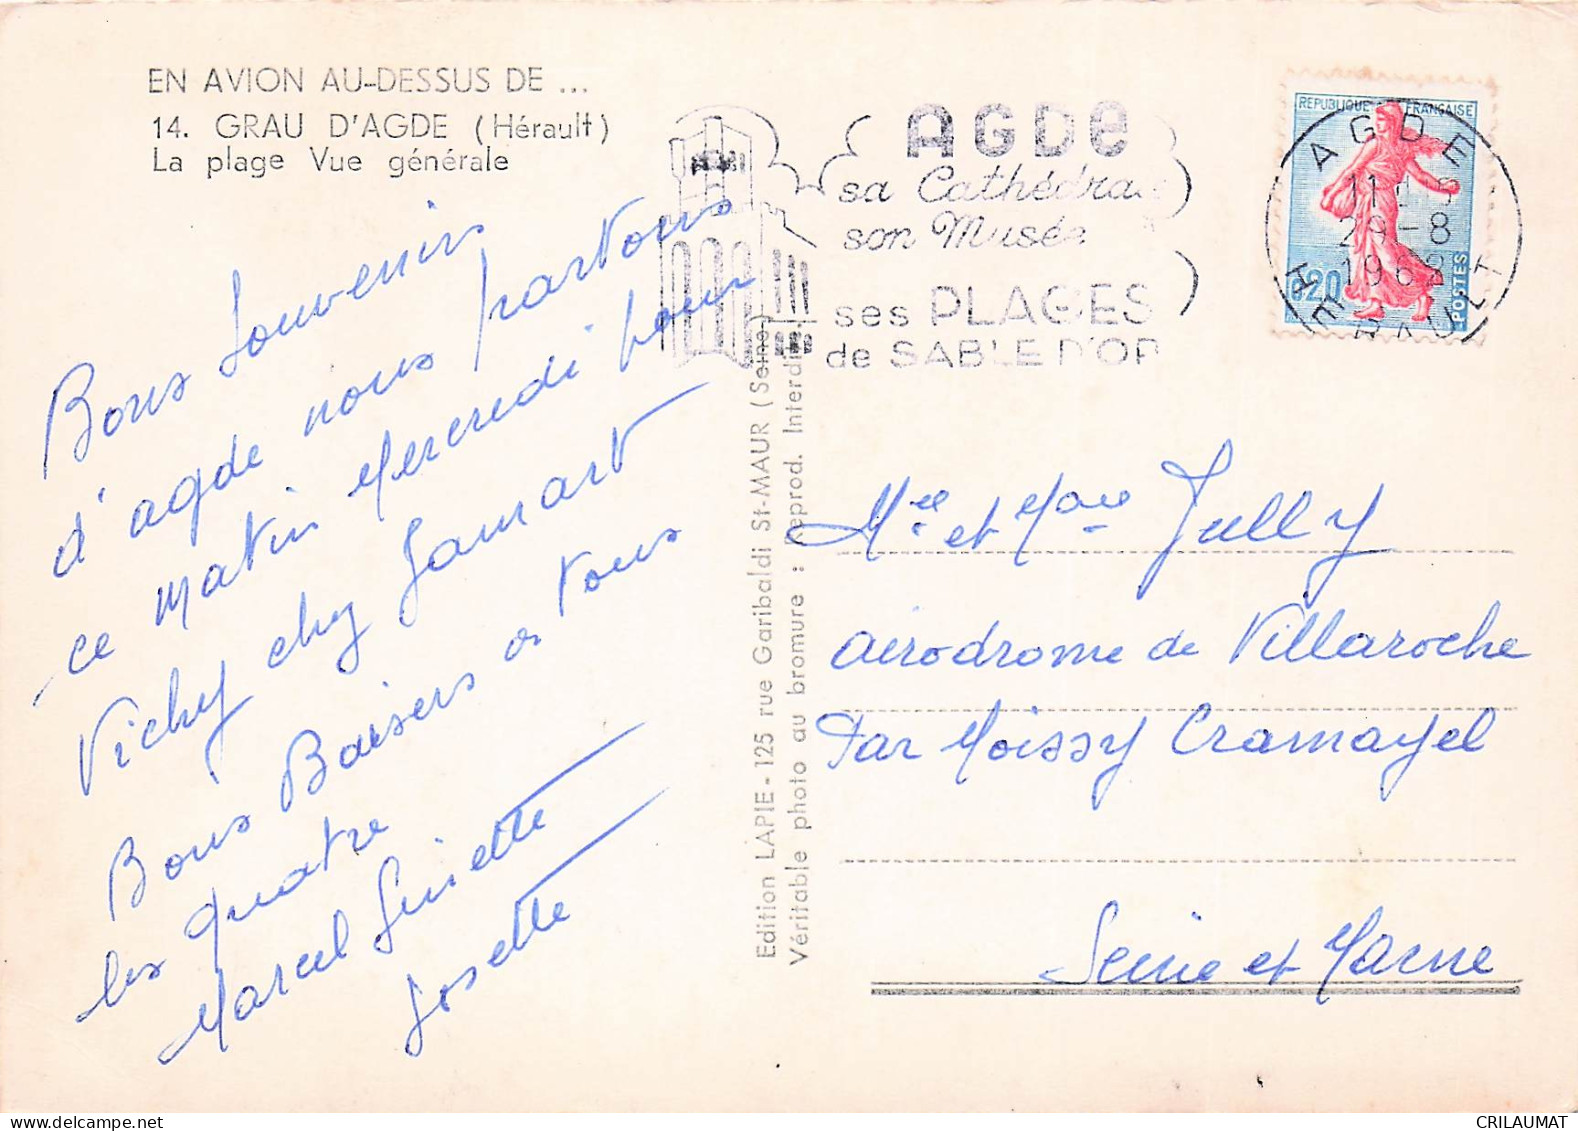 EN AVION AU-DESSUS DE ...
14. GRAU D'AGDE (Hérault)
La plage Vue générale
Bons Souvenirs
d'agde nous partons
ce matin Mercredi pour
Vichy chez Jamart
Bons Baisers a tous
les quatre
Marcel Ginette
Josette
Edition LAPIE - 125 rue Garibaldi St-MAUR (Seine)
Véritable photo au bromure : Reprod. Interdite
AGDE
sa Cathédrale
son Musée
ses PLAGES
de SABLE D'OR
REPUBLIQUE FRANÇAISE
0,20
POSTES
AGDE
29-8
1962
HERAULT
Mr et Mme Jully
aérodrome de Villaroche
Par Moissy Cramayel
Seine et Marne
CRILAUMAT